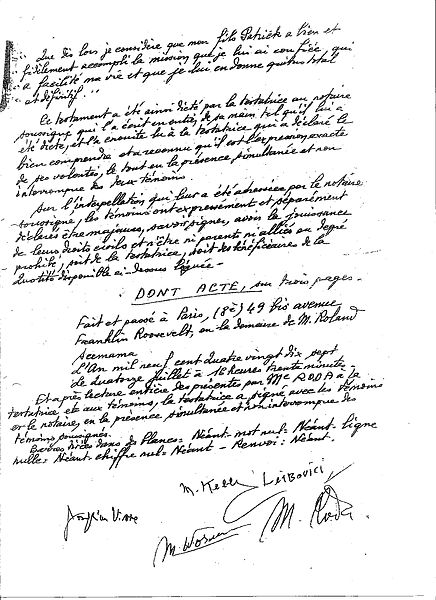 Que dès lors je considère que mon fils Patrick a bien et
fidèlement accompli la mission que je lui ai confiée, qui
a facilité ma vie et que je lui en donne quitus total
et définitif."
Ce testament a été ainsi dicté par la testatrice au notaire
soussigné qui l'a écrit en entier de sa main tel qu'il lui a
été dicté, et l'a ensuite lu à la testatrice qui a déclaré le
bien comprendre et a reconnu qu'il est l'expression exacte
de ses volontés, le tout en la présence simultanée et non
interrompue des deux témoins.
Sur l'interpellation qui leur a été adressée par le notaire
soussigné, les témoins ont expressément et séparément
déclaré être majeurs, savoir signer, avoir la jouissance
de leurs droits civils et n'être ni parents ni alliés au degré
prohibé, soit de la testatrice, soit des bénéficiaires de la
quotité disponible ci-dessus léguée -
DONT ACTE, sur trois pages -
Fait et passé à Paris, (8è) 49 bis avenue
Franklin Roosevelt, en la demeure de M. Roland
Acemama
L'An mil neuf cent quatre vingt dix sept
Le Quatorze Juillet à 16 heures trente minutes
Et après lecture entière des présentes par Me RODA à la
testatrice et aux témoins, la testatrice a signé avec les témoins
et le notaire, en la présence simultanée et non interrompue des
témoins soussignés.
Barres tirées dans des blancs = Néant - mot nul = Néant - ligne
nulle = Néant - chiffre nul = Néant - Renvoi = Néant.
M. Leibovici
M. Roda.